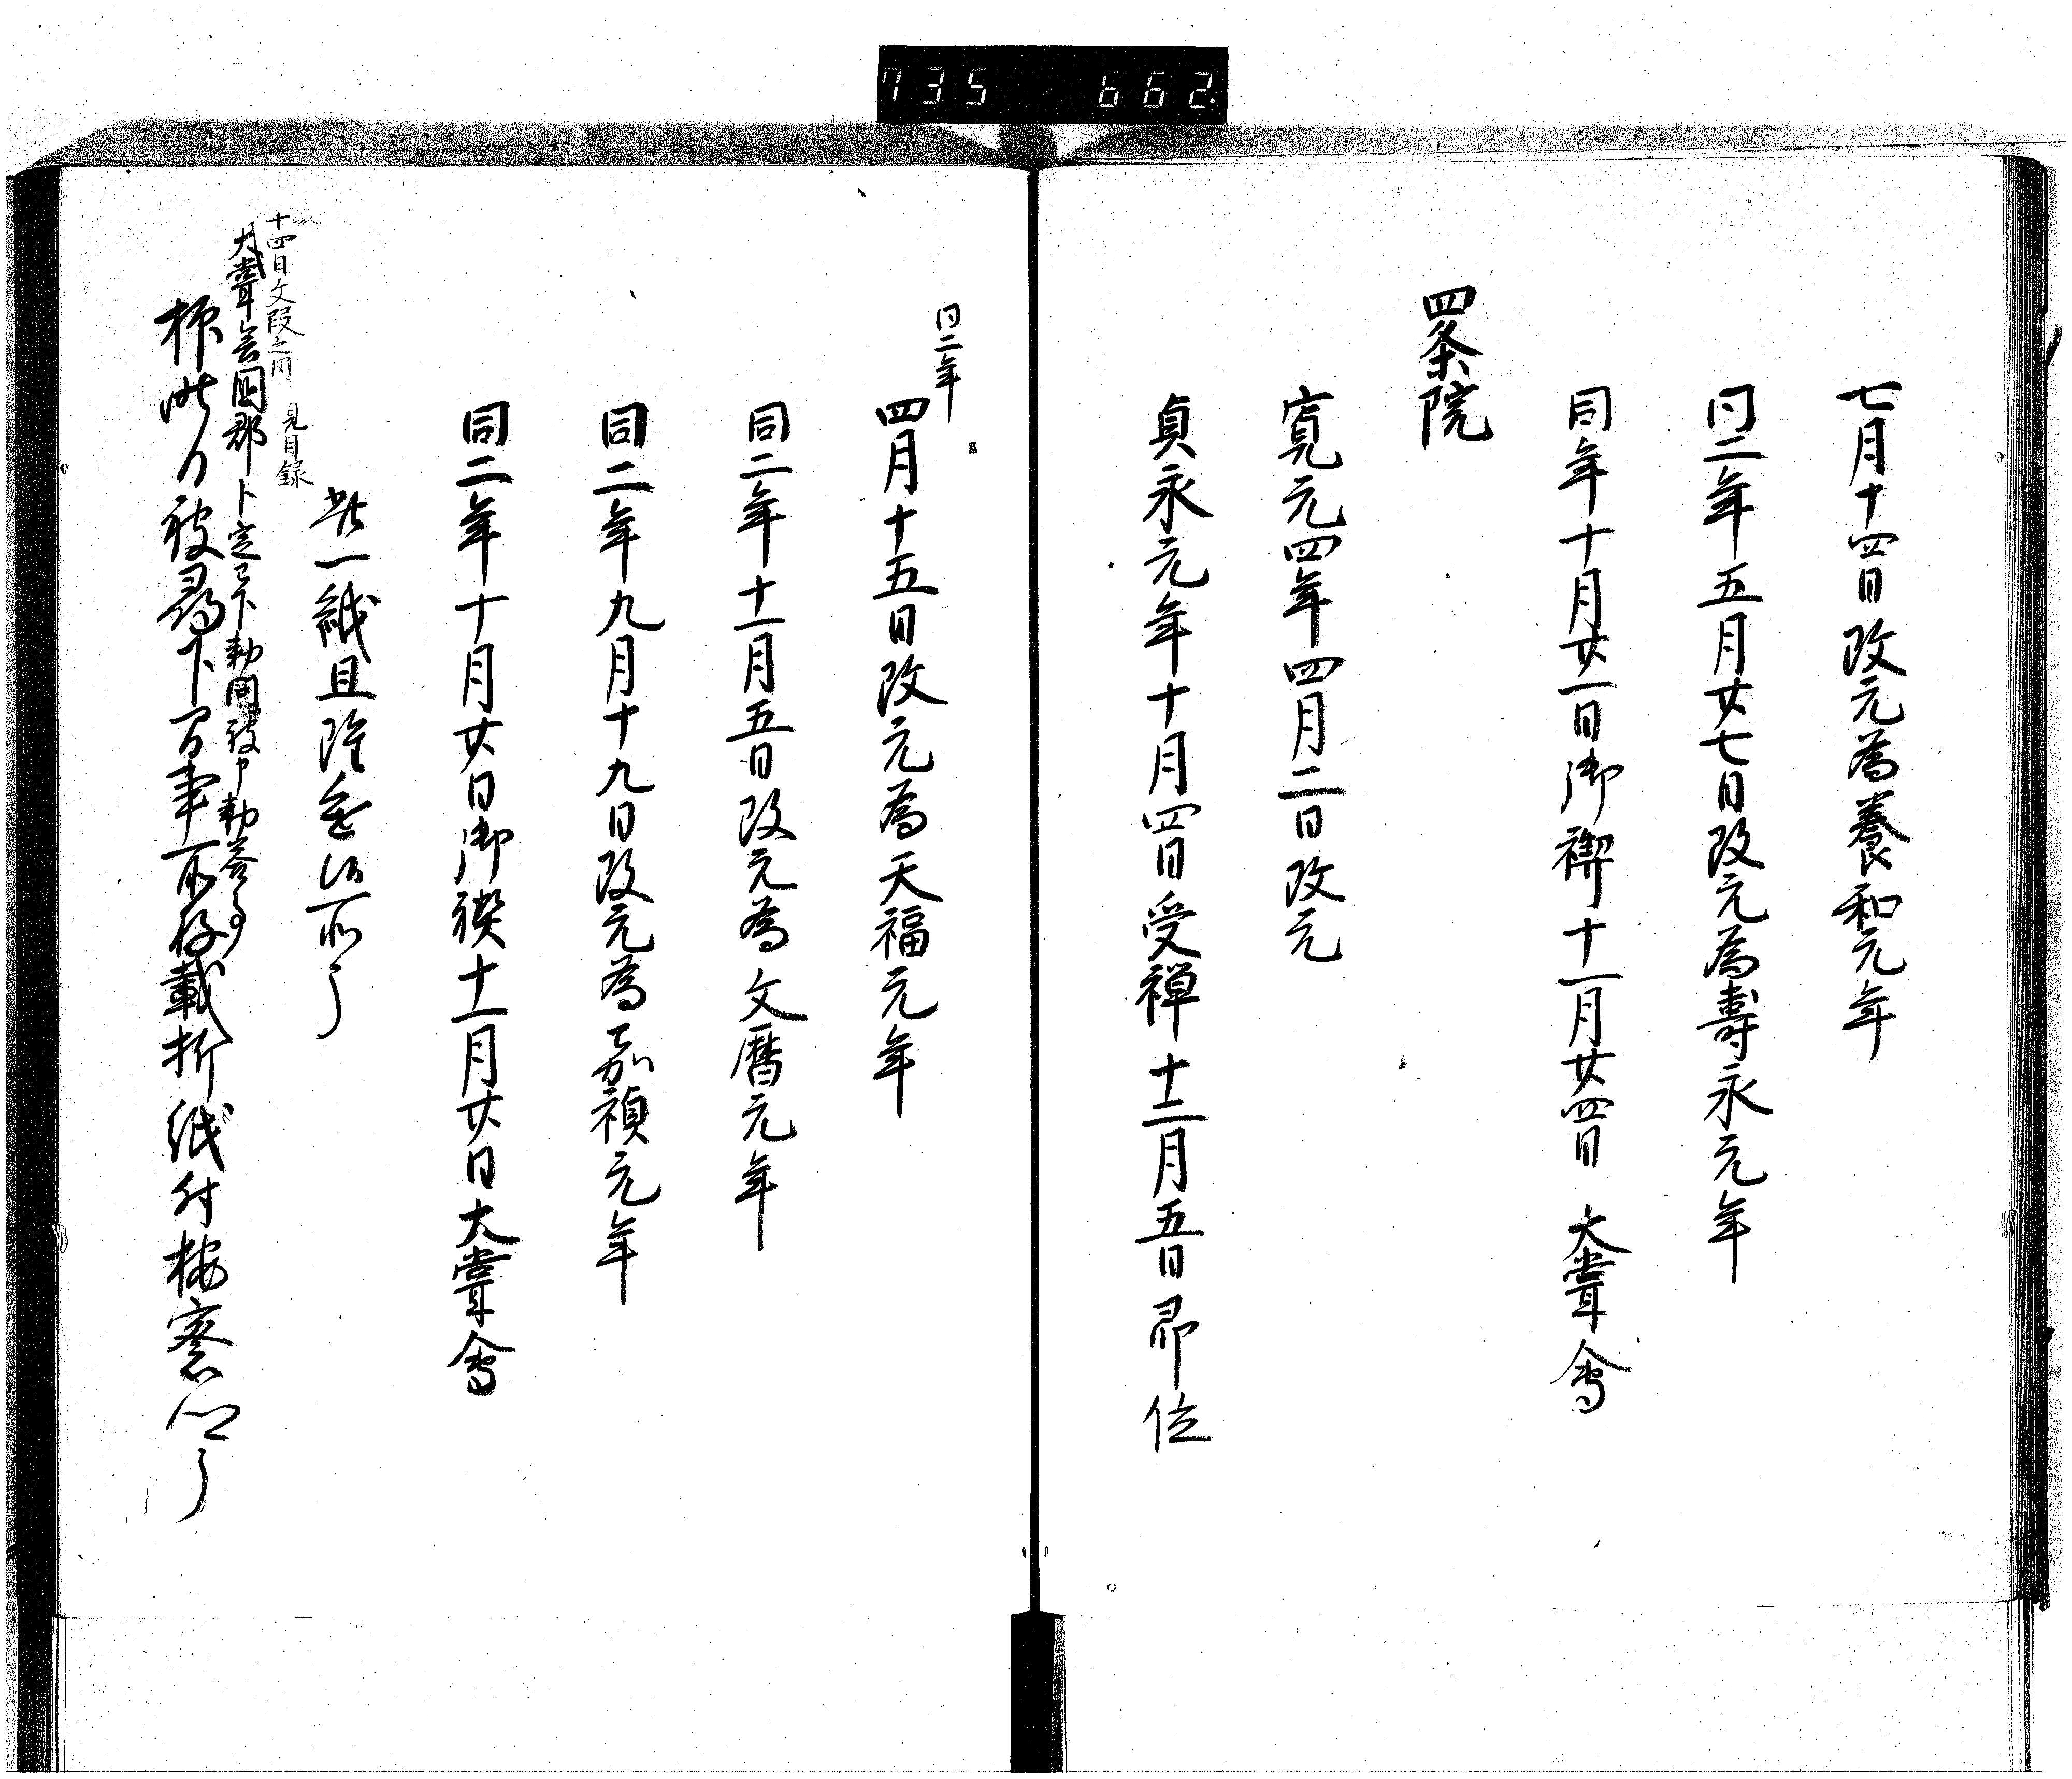 735 662
七月十四日改元為養和元年
同二年五月廿七日改元為壽永元年
同年十月廿一日御禊十一月廿四日大甞會
四条院
寛元四年四月二日改元
貞永元年十月四日受禅十二月五日即位
同二年
四月十五日改元為天福元年
同二年十一月五日改元為文暦元年
同二年九月十九日改元為嘉禎元年
同二年十月廿日御禊十一月廿日大甞會
此一紙且
見目録
十四日文段之内
大甞會國郡卜定已下勅問被申勅答事
抑此間被尋下
事所存載折紙付按察